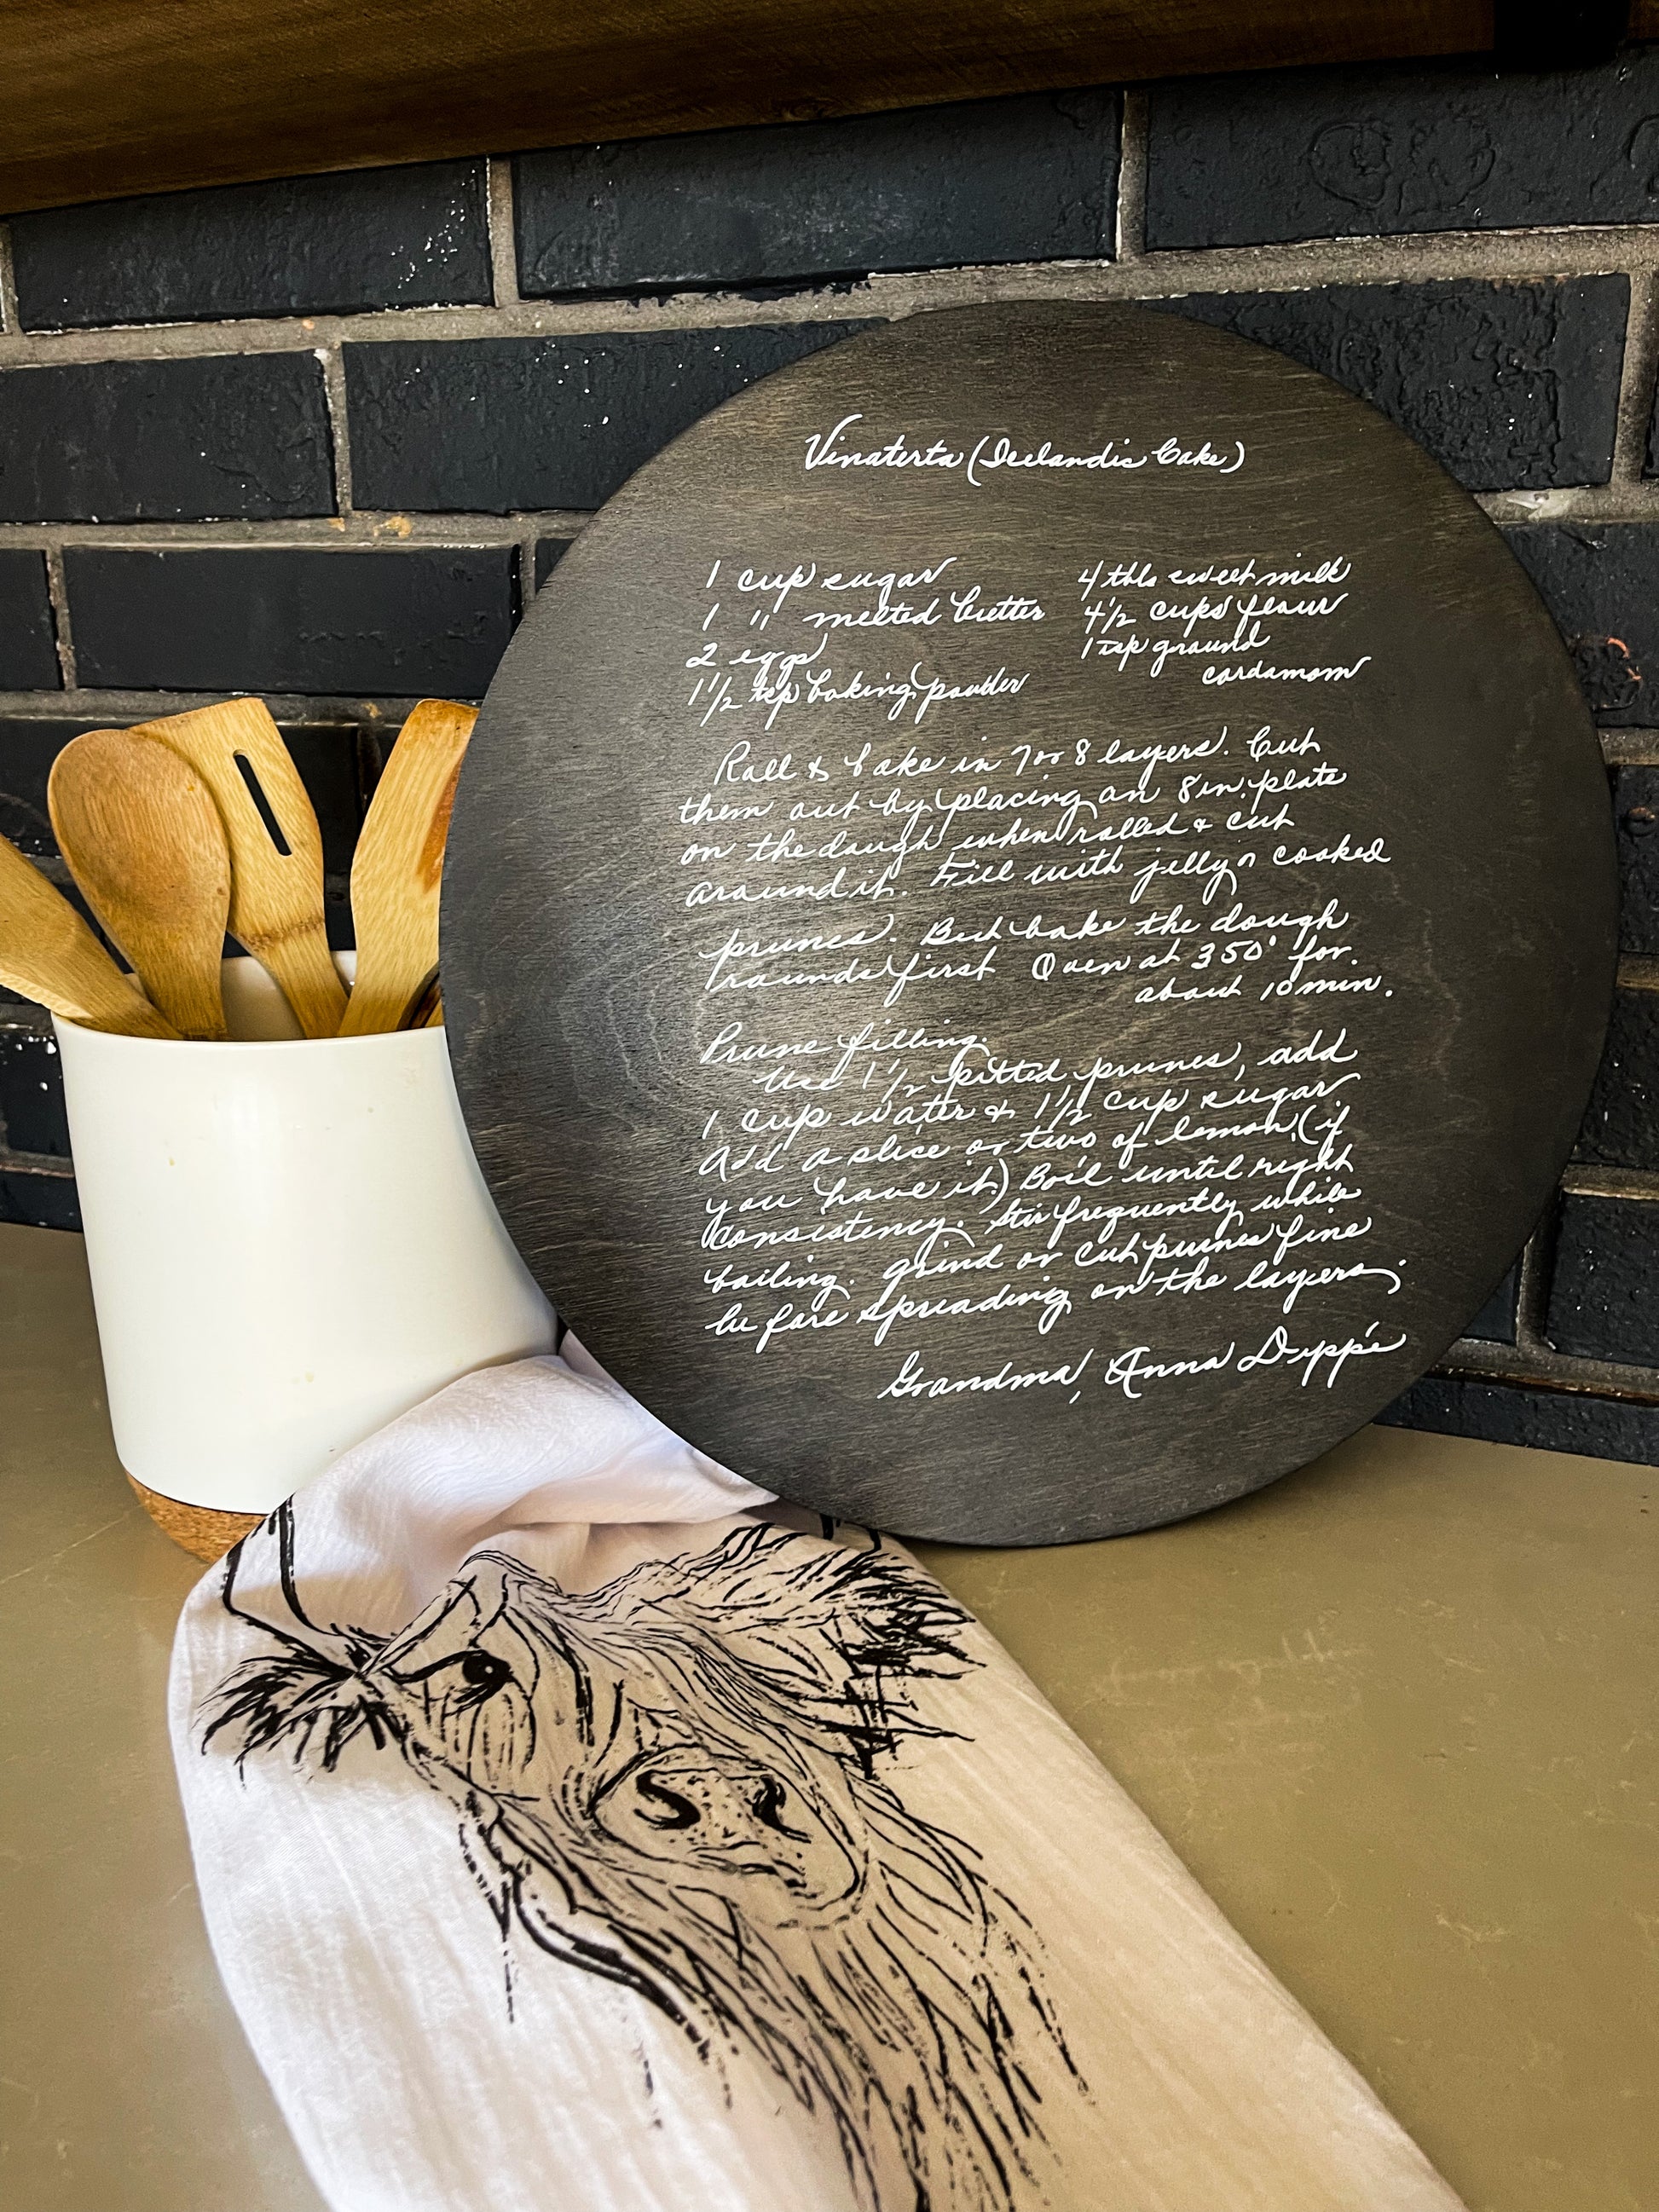 Vinaterta (Icelandic Cake)
1 cup sugar
1 " melted butter
2 eggs
1 1/2 tsp baking powder
4 tbls sweet milk
4 1/2 cups flour
1 tsp ground
cardamom
Roll & bake in 7 or 8 layers. Cut
them out by placing an 8 in. plate
on the dough when rolled & cut
around it. Fill with jelly or cooked
prunes. But bake the dough
rounds first Oven at 350° for
about 10 min.
Prune filling.
Use 1 1/2 pitted prunes, add
1 cup water & 1 1/2 cup sugar.
Add a slice or two of lemon (if
you have it) Boil until right
consistency. Stir frequently while
boiling. Grind or cut prunes fine
before spreading on the layers.
Grandma, Anna Deppé